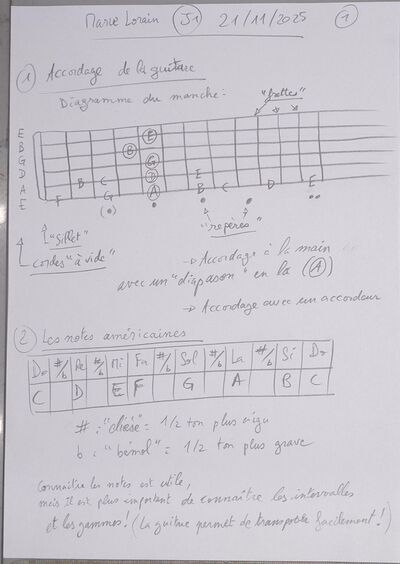 Marie Lorain J1 21/11/2025 1
1 Accordage de la guitare
Diagramme du manche.
"frettes"
E
B
G
D
A
E
E
B
G
D
A
B C E
F G B C D E
"sillet"
"repères"
cordes "à vide"
→ Accordage à la main
avec un "diapason" en la (A)
→ Accordage avec un accordeur
2 Les notes américaines
Do #/b Ré #/b Mi Fa #/b Sol #/b La #/b Si Do
C D E F G A B C
# : "dièse" = 1/2 ton plus aigu
b : "bémol" = 1/2 ton plus grave
Connaître les notes est utile,
mais il est plus important de connaître les intervalles
et les gammes ! (La guitare permet de transposer facilement !)